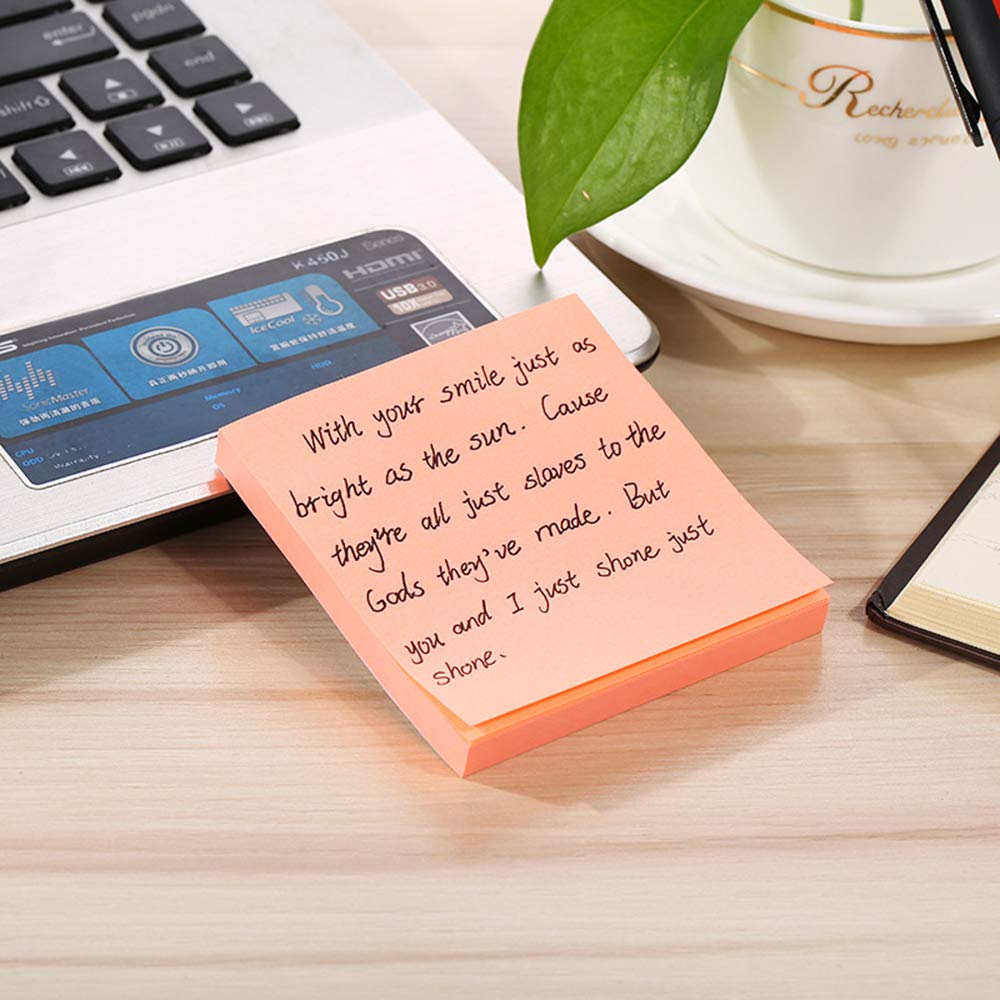 pgdn
enter
end
shift
K450J Series
HDMI
USB 3.0
10X
IceCool
SonicMaster
Memory
HDD
OS
CPU
ODD
Warranty
Recherche
With your smile just as
bright as the sun. Cause
they're all just slaves to the
Gods they've made. But
you and I just shone just
shone.